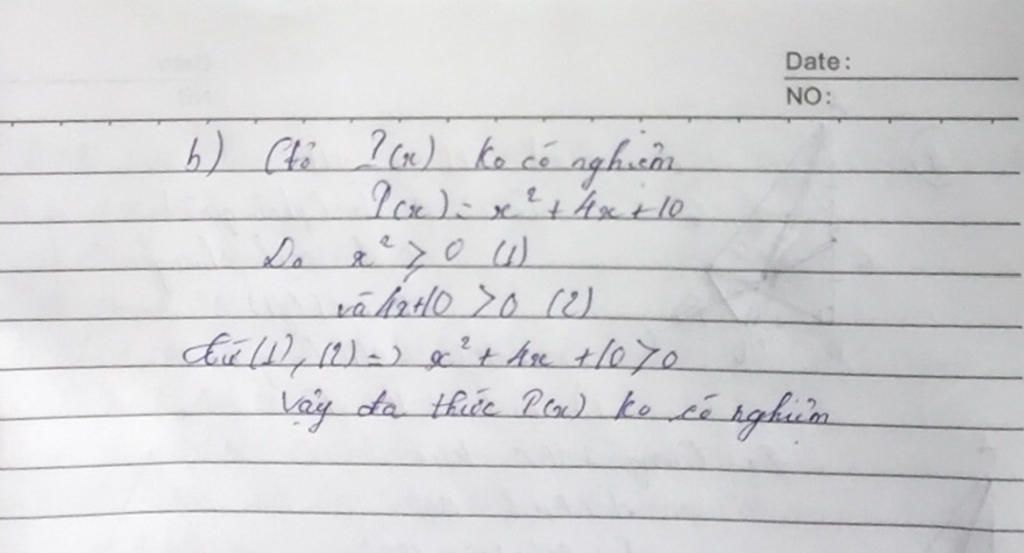 Date:
NO:
b) C/tỏ P(x) ko có nghiệm
P(x) = x² + 4x + 10
Do x² ≥ 0 (1)
và 4x+10 > 0 (2)
Từ (1), (2) => x² + 4x + 10 > 0
Vậy đa thức P(x) ko có nghiệm